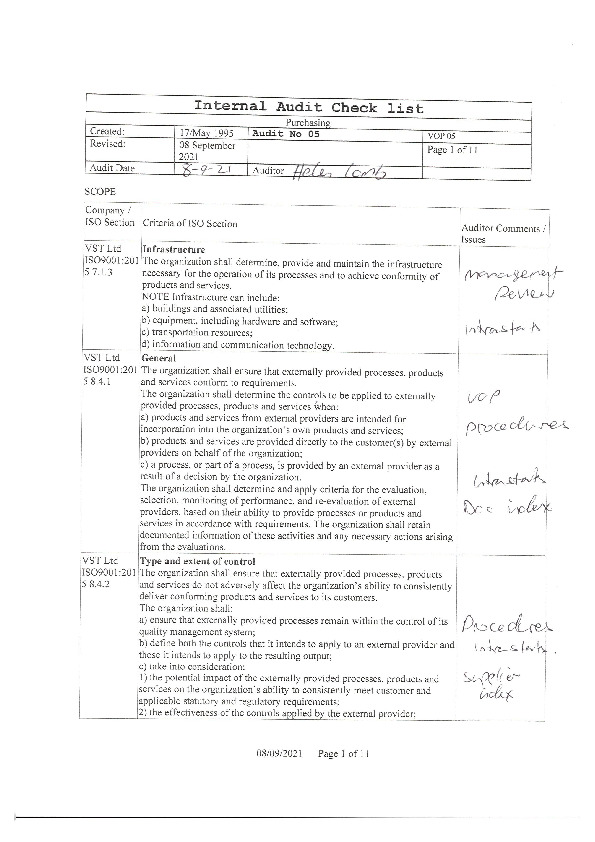 Internal Audit Check list
Purchasing
Created: 17/May 1995 Audit No 05 VOP 05
Revised: 08 September 2021 Page 1 of 11
Audit Date 8-9-21 Auditor
SCOPE
Company / ISO Section Criteria of ISO Section Auditor Comments / Issues
VST Ltd Infrastructure
ISO9001:201 The organization shall determine, provide and maintain the infrastructure
5 7.1.3 necessary for the operation of its processes and to achieve conformity of management
products and services. Review
NOTE Infrastructure can include:
a) buildings and associated utilities;
b) equipment, including hardware and software;
c) transportation resources; Intrastark
d) information and communication technology.
VST Ltd General
ISO9001:201 The organization shall ensure that externally provided processes, products
5 8.4.1 and services conform to requirements.
The organization shall determine the controls to be applied to externally VOP
provided processes, products and services when:
a) products and services from external providers are intended for
incorporation into the organization's own products and services; procedures
b) products and services are provided directly to the customer(s) by external
providers on behalf of the organization;
c) a process, or part of a process, is provided by an external provider as a
result of a decision by the organization. Intrastark
The organization shall determine and apply criteria for the evaluation,
selection, monitoring of performance, and re-evaluation of external
providers, based on their ability to provide processes or products and Doc index
services in accordance with requirements. The organization shall retain
documented information of these activities and any necessary actions arising
from the evaluations.
VST Ltd Type and extent of control
ISO9001:201 The organization shall ensure that externally provided processes, products
5 8.4.2 and services do not adversely affect the organization's ability to consistently
deliver conforming products and services to its customers.
The organization shall:
a) ensure that externally provided processes remain within the control of its Procedures
quality management system;
b) define both the controls that it intends to apply to an external provider and Intrastark.
those it intends to apply to the resulting output;
c) take into consideration;
1) the potential impact of the externally provided processes, products and Supplier
services on the organization's ability to consistently meet customer and index
applicable statutory and regulatory requirements;
2) the effectiveness of the controls applied by the external provider;
08/09/2021 Page 1 of 11